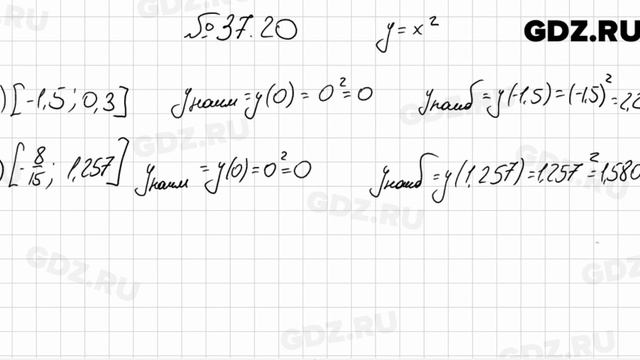 №37.20 y=x² GDZ.RU
) [-1,5; 0,3] yнаим=y(0)=0²=0 yнаиб=y(-1,5)=(-1,5)²=2,2
) [-8/15; 1,257] yнаим=y(0)=0²=0 yнаиб=y(1,257)=1,257²=1,580
GDZ.RU
GDZ.RU
GDZ.RU
GDZ.RU
GDZ.RU
GDZ.RU
GDZ.RU